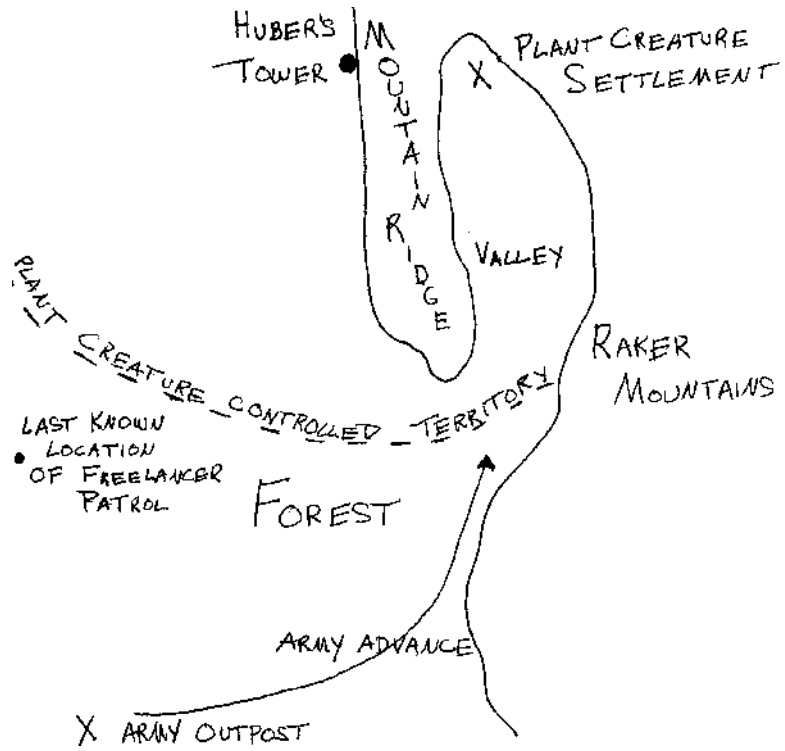 HUBER'S
TOWER
MOUNTAIN RIDGE
X
PLANT CREATURE
SETTLEMENT
VALLEY
RAKER
MOUNTAINS
PLANT CREATURE CONTROLLED TERRITORY
LAST KNOWN
LOCATION
OF FREELANCER
PATROL
FOREST
ARMY ADVANCE
X ARMY OUTPOST